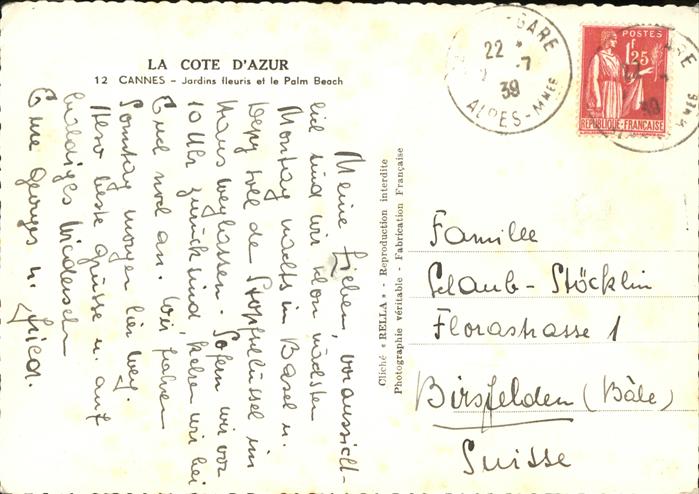 LA COTE D'AZUR
12 CANNES - Jardins fleuris et le Palm Beach
Meine Lieben, voraussicht-
lich sind wir schon nächsten
Montag nachts in Basel u.
Depy soll de Stopfschlüssel im
Haus weglassen. Sofern wir vor
10 Uhr zurück sind, gehen wir bei
Euch noch an. Wir fahren
Sonntag morgen hier weg.
Herz. liebe Grüsse u. auf
baldiges Wiedersehen
Eure Georges u. Fried.
Cliché « RELLA » - Reproduction interdite
Photographie véritable - Fabrication Française
-GARE
22 -7
39
ALPES-MMES
POSTES
1F25
REPUBLIQUE-FRANÇAISE
22
39
Familie
Schaub-Stöcklin
Florastrasse 1
Birsfelden (Bâle)
Suisse